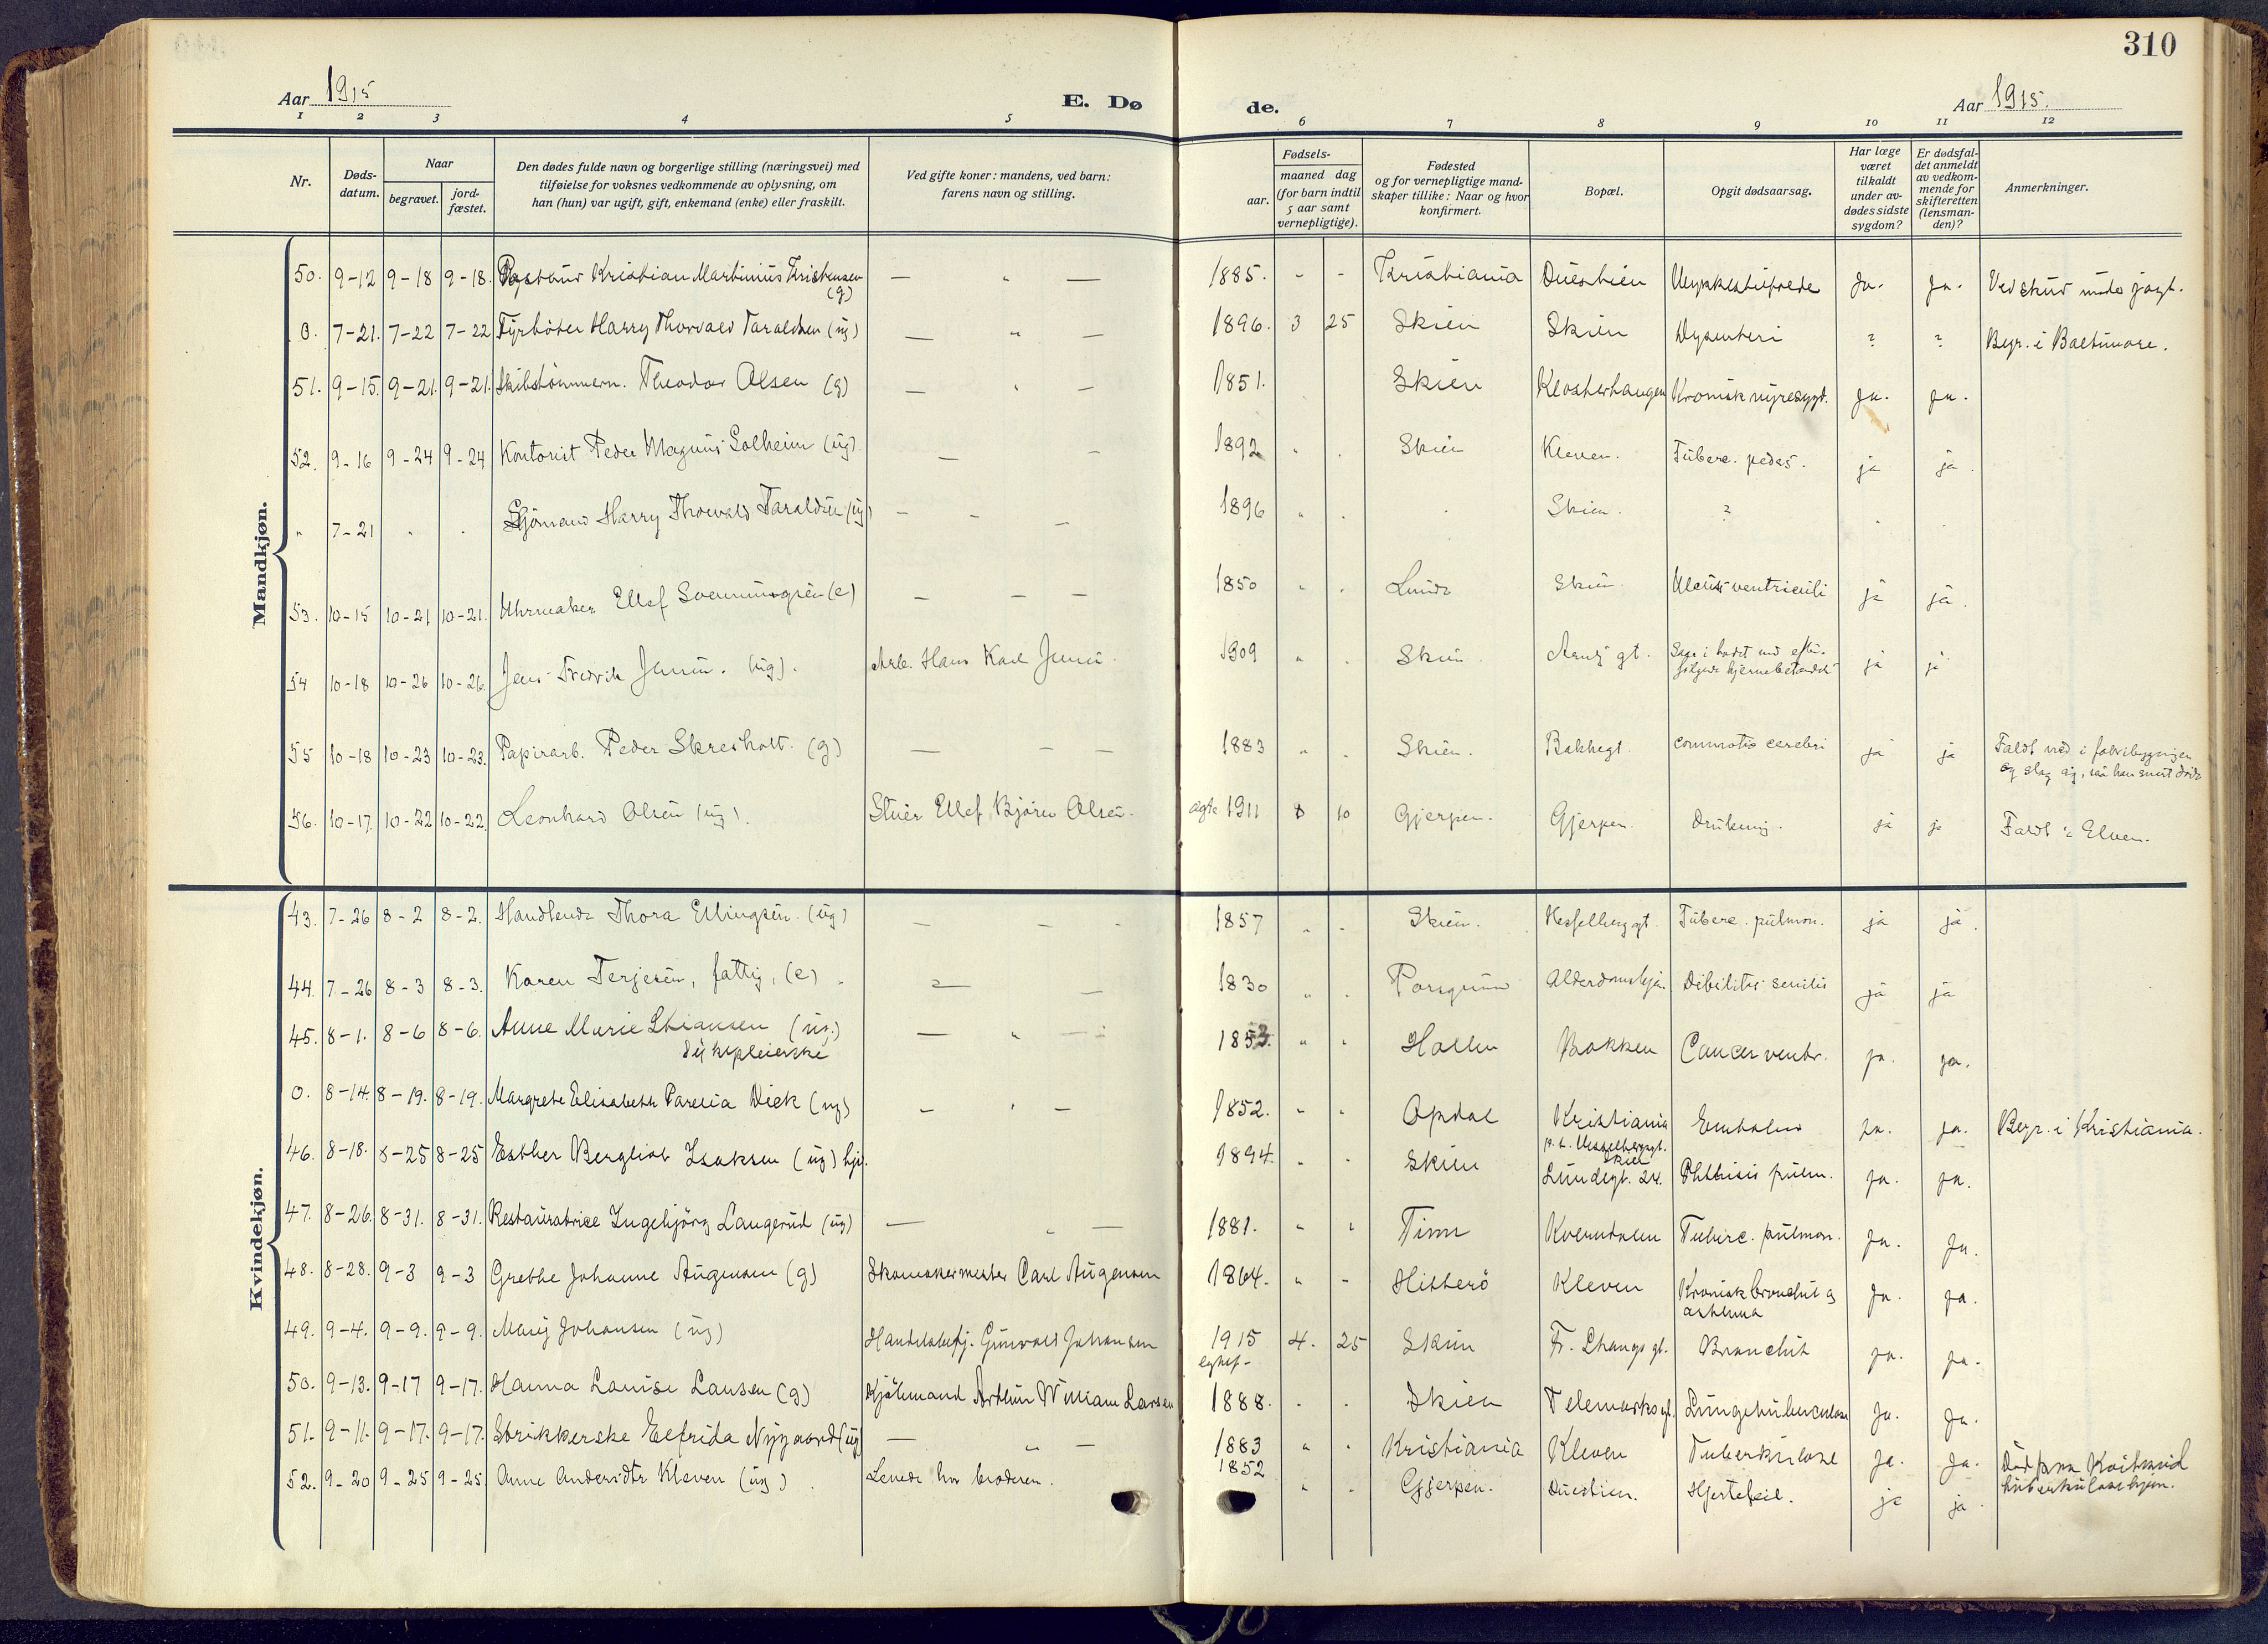 310
Aar 1915
E. Dø
de.
Aar 1915.
1 2 3 4 5 6 7 8 9 10 11 12
Nr.
Døds-
datum.
Naar
begravet.
jord-
fæstet.
Den dødes fulde navn og borgerlige stilling (næringsvei) med
tilføielse for voksnes vedkommende av oplysning, om
han (hun) var ugift, gift, enkemand (enke) eller fraskilt.
Ved gifte koner: mandens, ved barn:
farens navn og stilling.
Fødsels-
aar.
maaned dag
(for barn indtil
5 aar samt
vernepligtige).
Fødested
og for vernepligtige mand-
skaper tillike: Naar og hvor
konfirmert.
Bopæl.
Opgit dødsaarsag.
Har læge
været
tilkaldt
under av-
dødes sidste
sygdom?
Er dødsfal-
det anmeldt
av vedkom-
mende for
skifteretten
(lensman-
den)?
Anmerkninger.
Mandkjøn.
50. 9-12 9-18 9-18. Kristian Martinius Kristensen (g) — " — 1885. - - Kristiania Duestien Ja. Ja. Ved skud under jagt.
0. 7-21. 7-22 7-22 Fyrbøter Harry Thorvald Taraldsen (ug) — " — 1896. 3 25 Skien Skien Dysenteri ? ? Begr. i Baltimore.
51. 9-15. 9-21. 9-21. Skibstømmerm. Theodor Olsen (g) — ' — 1851. Skien Klosterhaugen Kronisk nyresygd. Ja. Ja.
52. 9-16 9-24 9-24 Kontorist Peder Magnus Solheim (ug) — — 1892 Skien Kleven. Tuberc. pedes. ja ja
" 7-21 . . Sjömand Harry Thorvald Taraldsen (ug) — — — 1896 " . . Skien. ?
53. 10-15 10-21 10-21. Uhrmaker Ellef Svenningsen (e) — — — 1850 " . Lunde Skien. Ulcus ventriculi ja ja.
54 10-18 10-26 10-26. Jens Fredrik Jensen. (ug). Arb. Hans Karl Jensen. 1909 " . Skien gt. ja ja
55 10-18 10-23 10-23. Papirarb. Peder Skresholt. (g) — — — 1883 " . Skien. Bakkegt. commotio cerebri ja ja Faldt ned i fabrikbygningen
og slog sig, saa han snart døde
56. 10-17. 10-22 10-22. Leonhard Olsen (ug). Stuer Ellef Bjørn Olsen. ægte 1911 8 10 Gjerpen. Gjerpen. Drukning. ja ja Faldt i Elven.
Kvindekjøn.
43. 7-26 8-2 8-2. Handlende Thora Ellingsen. (ug) — — - 1857 " - Skien. Hesselberggt. Tuberc. pulmon. ja ja.
44. 7-26 8-3 8-3. Karen Terjesen, fattig, (e) — — 1830 " . Porsgrund Alderdomshj. Debilitas senilis ja ja
45. 8-1. 8-6 8-6. Anne Marie Stiansen (ug.)
Sykepleierske — " — 1853. " . Hollen Bakken Cancer ventr. ja. ja.
0. 8-14. 8-19. 8-19. Margrete Elisabeth Parelia Dick (ug) — ' — 1852. " . Opdal Kristiania
p.t. Hesselberggt.
Skien ja. ja. Begr. i Kristiania.
46. 8-18. 8-25 8-25 Esther Bergliot Isaksen (ug) hj. 1894. " . Skien Lundegt. 24. Phthisis pulm. ja. ja.
47. 8-26. 8-31. 8-31. Restauratrice Ingebjörg Langerud (ug) — " — 1881. " . Tinn Kverndalen Tuberc. pulmon. Ja. Ja.
48. 8-28. 9-3 9-3 Grethe Johanne Augensen (g) Skomakermester Carl Augensen 1864. " - Hitterö Kleven Kronisk bronchit og
asthma Ja. ja.
49. 9-4. 9-9. 9-9. Mary Johansen (ug) Handelsbetj. Gunvald Johansen 1915 4. 25 Skien Fr. Stangs gt. Bronchit ja. ja.
50. 9-13. 9-17 9-17. Hanna Louise Larsen (g) Sjömand Arthur William Larsen 1888. . . Skien Telemarksgt. Lungetuberculose Ja. Ja.
51. 9-11. 9-17. 9-17. Strikkerske Elfrida Nygaard (ug) — " — 1883 " . Kristiania Kleven Tuberkulose ja. Ja. Död paa
tuberkulosehjem.
52. 9-20 9-25 9-25. Anne Andersdtr Kleven (ug). Levede hos broderen. 1852 " . Gjerpen. Duestien. Hjertefeil. ja ja